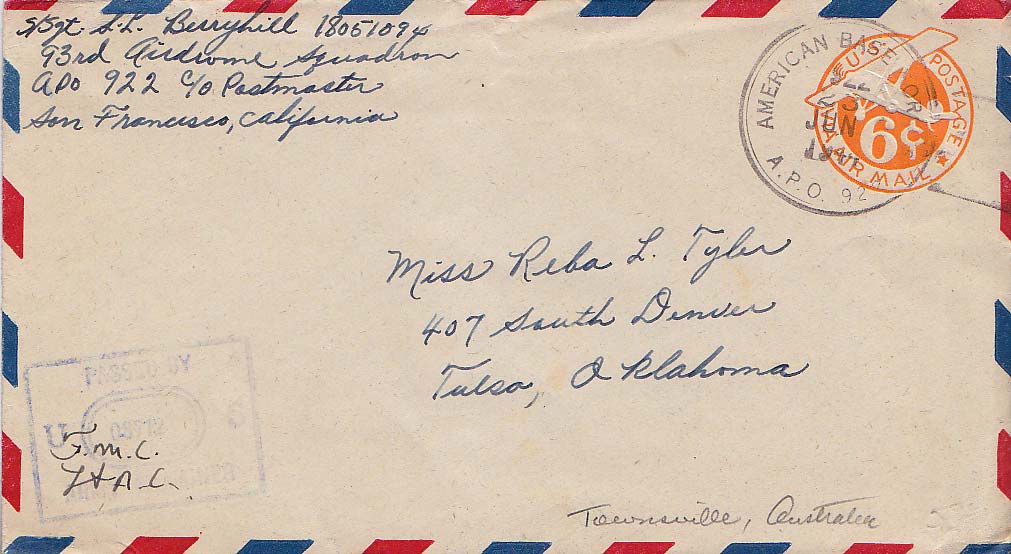 S/Sgt. S.L. Berryhill 18051094
93rd Airdrome Squadron
APO 922 c/o Postmaster
San Francisco, California
AMERICAN BASE FOR
JUN
A.P.O. 92
U POSTAGE
6¢
AIR MAIL
Miss Reba L. Tyler
407 South Denver
Tulsa, Oklahoma
PASSED BY
U S
F.M.C.
Townsville, Australia